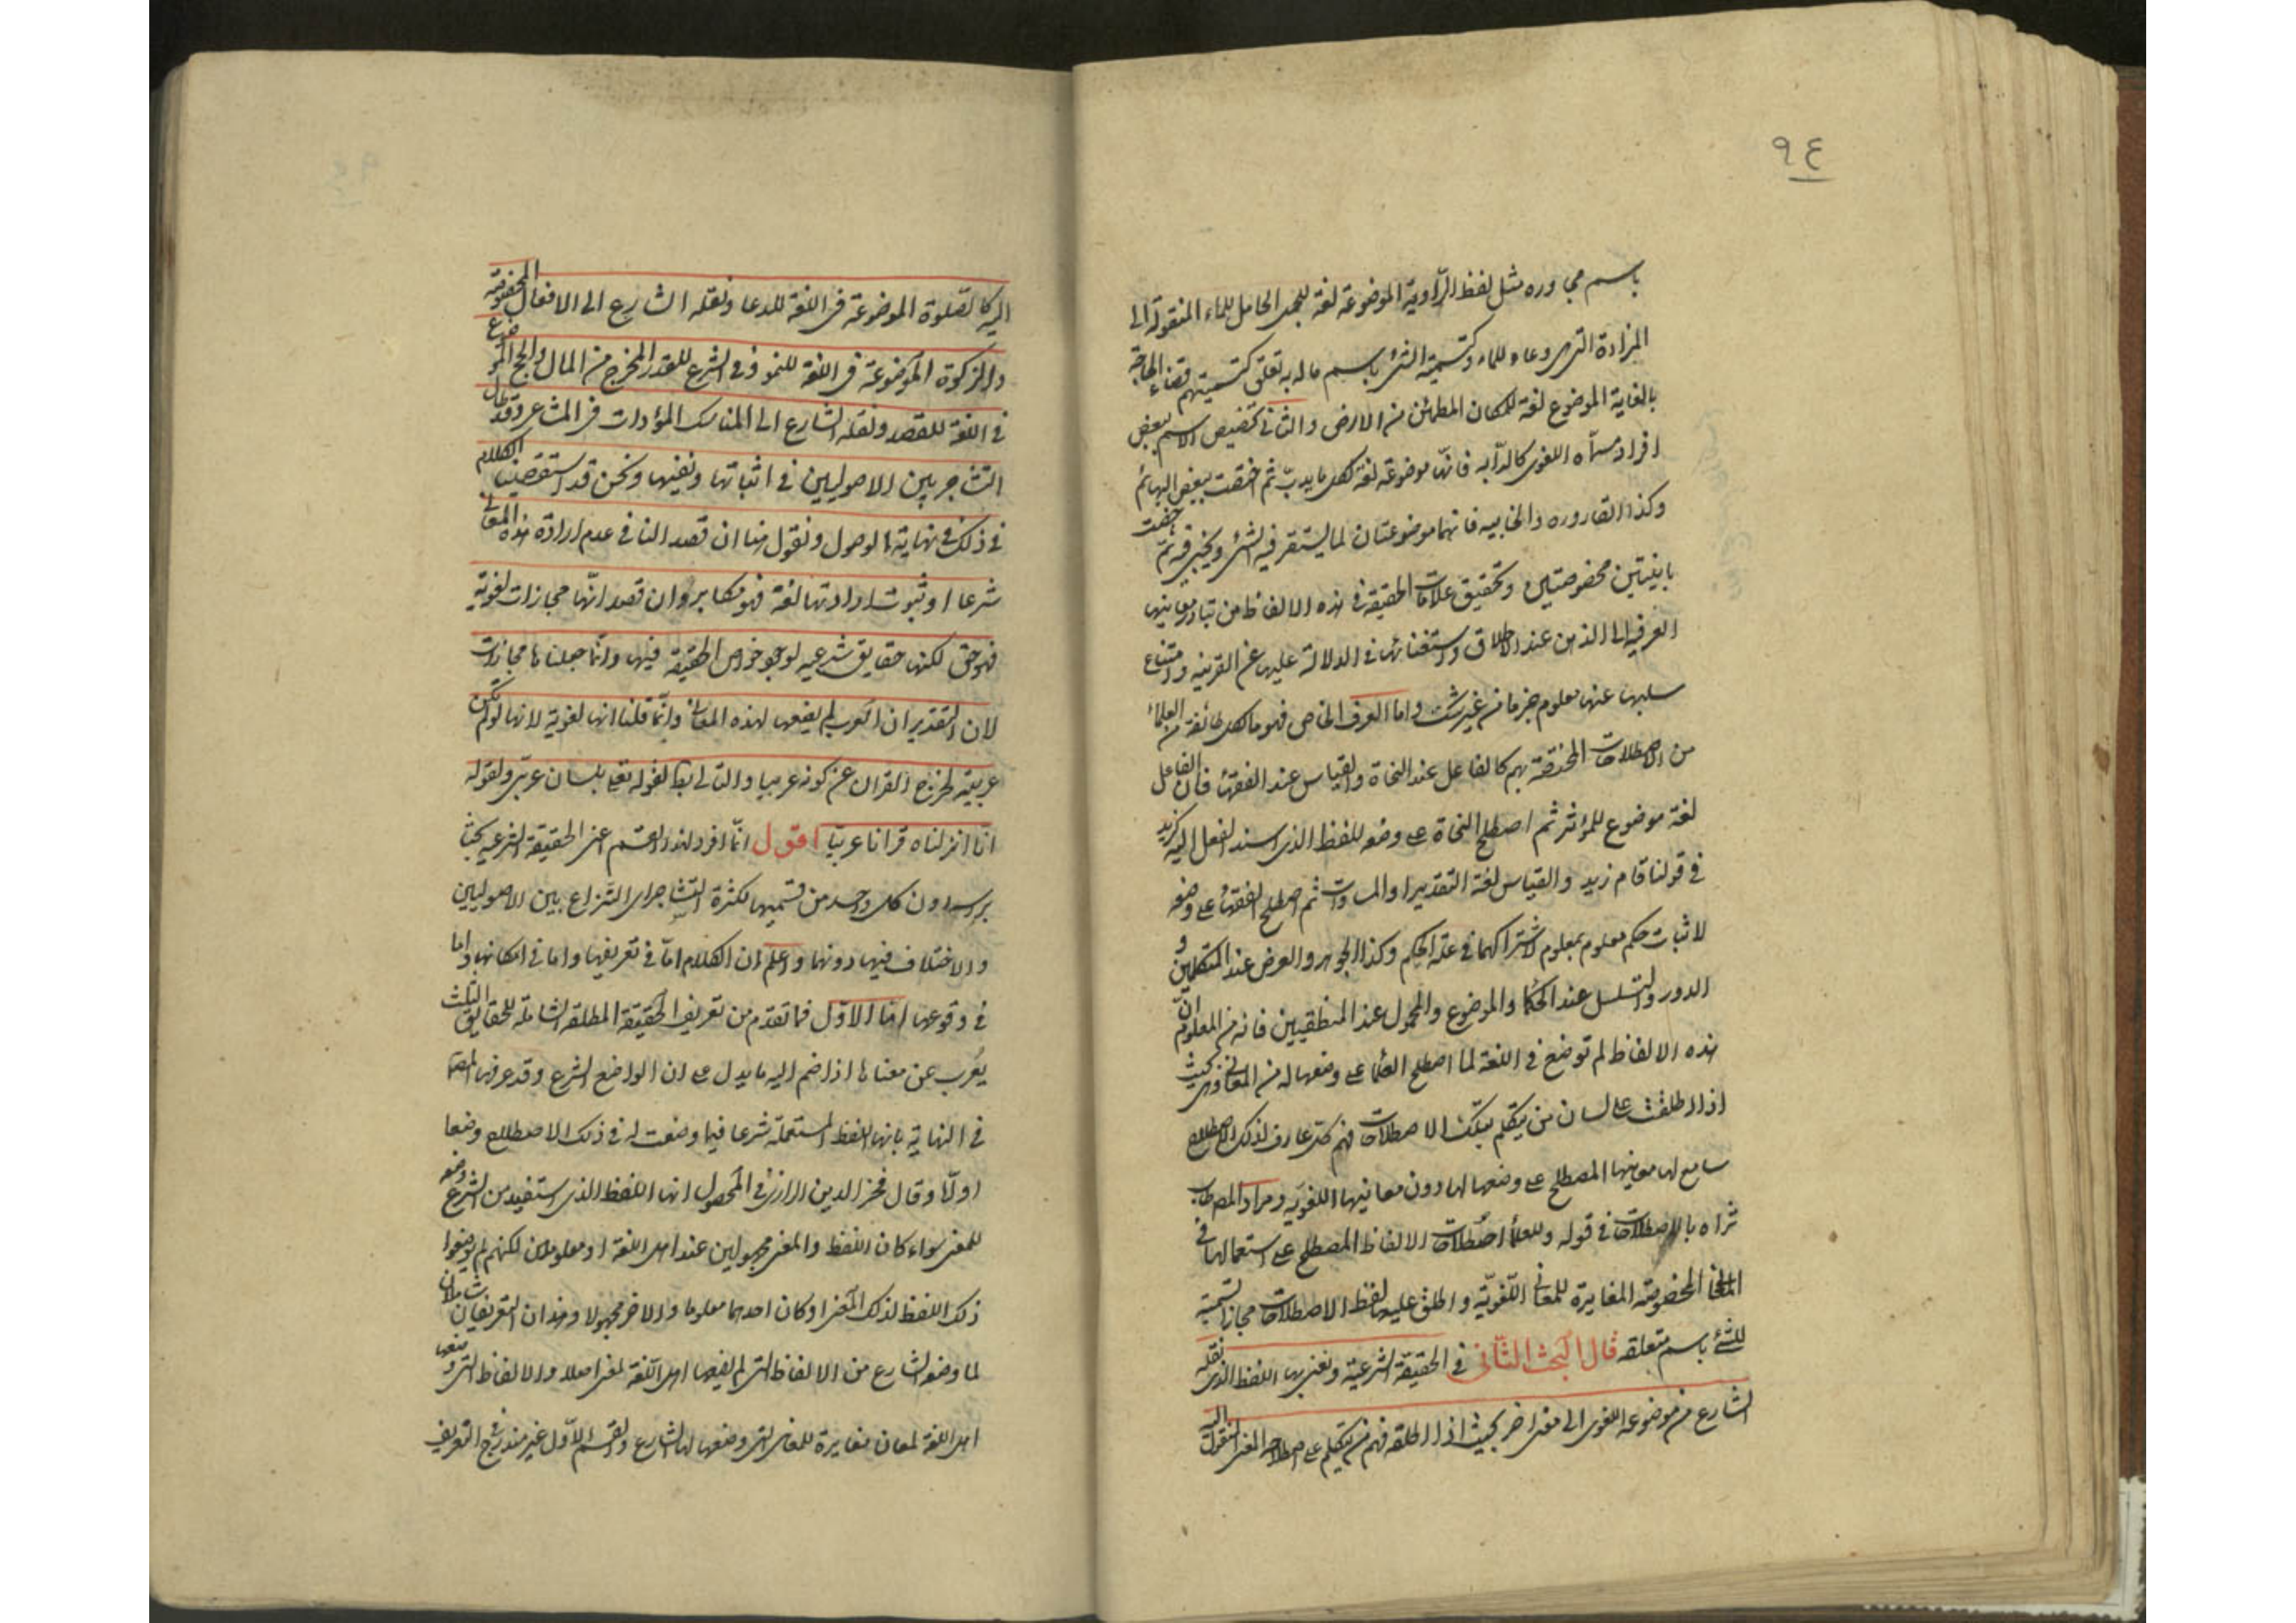 ٩٤
باسم مجاوره مثل لفظ الرّاوية الموضوعة لغة للجمل الحامل للماء المنقولة الى
المزادة التى هى وعاء للماء وكتسمية الشئ باسم ماله به تعلق كتسميتهم قضاء الحاجة
بالغاية الموضوع لغة للمكان المطمئن من الارض والثانى تخصيص الاسم ببعض
افراد مسمّاه اللغوى كالدّابه فانّها موضوعة لغة لكل ما يدبّ ثم اختصّت ببعض البهائم
وكذا القاروره والخابيه فانهما موضوعتان لما يستقر فيه الشئ ويخبى فيه ثمّ خصّت
بابنيتين مخصوصتين وتحقيق علامات الحقيقة فى هذه الالفاظ من تبادر معانيها
العرفيه الى الذهن عند الاطلاق واستغنائها فى الدلالة عليها عن القرينه وامتناع
سلبها عنها معلوم جزما من غير شك واما العرف الخاص فهو ما لكل طائفة من العلماء
من الاصطلاحات المختصّة بهم كالفاعل عند النحاة والقياس عند الفقهاء فان الفاعل
لغة موضوع للمؤثر ثم اصطلح النحاة على وضعه للفظ الذى اسند الفعل اليه كزيد
فى قولنا قام زيد والقياس لغة التقدير او المساواة ثم اصطلح الفقهاء على وضعه
لاثبات حكم معلوم بمعلوم لاشتراكهما فى علة الحكم وكذا الجوهر والعرض عند المتكلمين و
الدور والتسلسل عند الحكما والموضوع والمحمول عند المنطقيين فانه من المعلوم انّ
هذه الالفاظ لم توضع فى اللغة لما اصطلح العلما على وضعها له من المعانى وهى بحيث
اذا اطلقت على لسان من يتكلم بتلك الاصطلاحات فهم كل عارف لذلك الاصطلاح
سامع لها معانيها المصطلح على وضعها لها دون معانيها اللغويّه ومراد المصنف طاب
ثراه بالاصطلاحات فى قوله وللعلماء اصطلاحات الالفاظ المصطلح على استعمالها فى
المعانى المخصوصة المغايرة للمعانى اللّغويّة واطلق عليها لفظ الاصطلاحات مجازا تسمية
للشئ باسم متعلقه قال البحث الثّانى فى الحقيقة الشرعيّة ونعنى بها اللفظ الذى نقله
الشارع من موضوعه اللغوى الى معنى اخر بحيث اذا اطلقه فهم من يتكلم على اصطلاحه المعنى المنقول اليه
اليه كالصّلوة الموضوعة فى اللغة للدعا ونقله الشارع الى الافعال المخصوصة
والزكوة الموضوعة فى اللغة للنمو وفى الشرع للقدر المخرج من المال والحج الموضوع
فى اللغة للقصد ونقله الشارع الى المناسك المؤدات فى المشاعر وقد طال
التشاجر بين الاصوليين فى اثباتها ونفيها ونحن قد استقصينا الكلام
فى ذلك فى نهاية الوصول ونقول هنا ان قصد النافى عدم ارادة هذه المعانى
شرعا او ثبوت ارادتها لغة فهو مكابر وان قصد انّها مجازات لغوية
فهو حق لكنها حقايق شرعيه لوجود خواص الحقيقة فيها وانّما جعلناها مجازات
لان التقدير ان العرب لم يضعها لهذه المعانى وانّما قلنا انها لغوية لانها لو لم يكن
عربيّة لخرج القران عن كونه عربيا والتالى باطل لقوله تعالى بلسان عربىّ ولقوله
انّا انزلناه قرانا عربيّا اقول انّما افرد لهذا القسم اعنى الحقيقة الشرعيه بحثا
براسه دون كل واحد من قسميها لكثرة التشاجر اى النّزاع بين الاصوليين
والاختلاف فيها دونهما واعلم ان الكلام امّا فى تعريفها واما فى امكانها واما
فى وقوعها امّا الاوّل فما تقدّم من تعريف الحقيقة المطلقة الشاملة للحقايق الثلث
يُعْرب عن معناها اذا ضم اليه ما يدل على ان الواضع الشرع وقد عرفها المصنف
فى النهاية بانها اللفظ المستعملة شرعا فيما وضعت له فى ذلك الاصطلاح وضعا
اولّا وقال فخر الدين الرازى فى المحصول انها اللفظ الذى استفيد من الشرع وضعه
للمعنى سواء كان اللفظ والمعنى مجهولين عند اهل اللغة او معلومين لكنهم لم يضعوا
ذلك اللفظ لذلك المعنى او كان احدهما معلوما والاخر مجهولا وهذان التعريفان شاملان
لما وضعه الشارع من الالفاظ التى لم يضعها اهل اللّغة لمعنى اصلا والالفاظ التى وضعها
اهل اللغة لمعان مغايرة للمعانى التى وضعها لها الشارع والقسم الاوّل غير مندرج فى التعريف